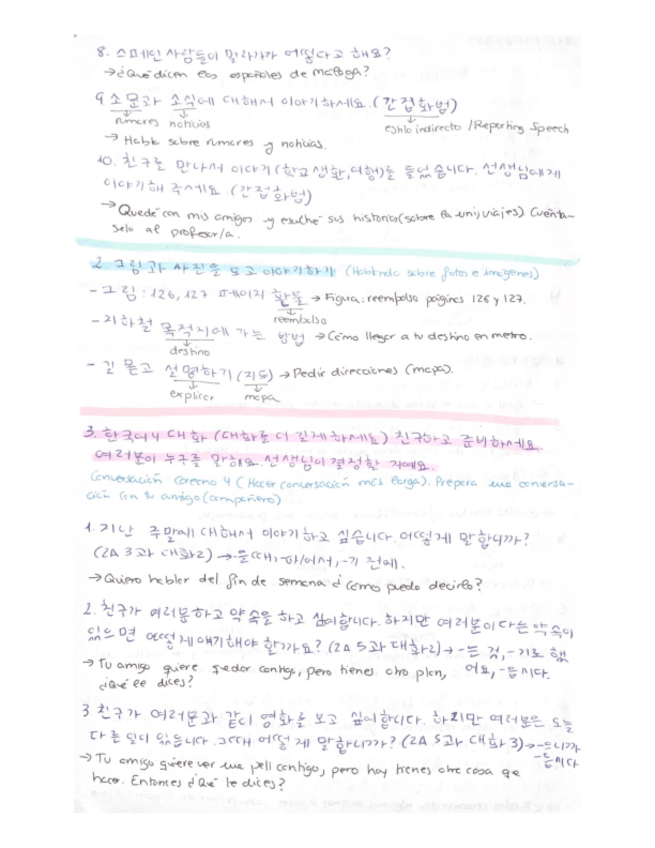 8. 스페인 사람들이 말라가가 어떻다고 해요?
→ ¿Qué dicen los españoles de málaga?
9. 소문과 소식에 대해서 이야기하세요. (간접화법)
rumores noticias estilo indirecto / Reporting Speech
→ Habla sobre rumores y noticias.
10. 친구를 만나서 이야기 (학교 생활, 여행)를 들었습니다. 선생님에게
이야기해 주세요. (간접화법)
→ Quedé con mis amigos y esuché sus historias (sobre la uni, viajes). Cuénta-
selo al profesor/a.
2. 그림과 사진을 보고 이야기하기 (Hablando sobre fotos e imágenes)
- 그림 : 126, 127 페이지 환불 → Figura: reembolso páginas 126 y 127.
reembolso
- 지하철 목적지에 가는 방법 → Cómo llegar a tu destino en metro.
destino
- 길 묻고 설명하기 (지도) → Pedir direcciones (mapa).
explicar mapa
3. 한국어 4 대화 (대화를 더 길게 하세요) 친구하고 준비하세요.
여러분이 누구를 말해요. 선생님이 결정할 거예요.
Conversación coreano 4 (Hacer conversación más larga). Prepara una conversa-
ción con tu amigo (compañero)
1. 지난 주말에 대해서 이야기하고 싶습니다. 어떻게 말합니까?
(2A 3과 대화2) → -을 때, -아/어서, -기 전에.
→ Quiero hablar del fin de semana ¿cómo puedo decirlo?
2. 친구가 여러분하고 약속을 하고 싶어합니다. 하지만 여러분이 다른 약속이
있으면 어떻게 얘기해야 할까요? (2A 5과 대화2) → -는 것, -기로 했
→ Tu amigo quiere quedar contigo, pero tienes otro plan, 어요, -읍시다.
¿Qué le dices?
3. 친구가 여러분과 같이 영화를 보고 싶어합니다. 하지만 여러분은 오늘
다른 일이 있습니다. 그때 어떻게 말합니까? (2A 5과 대화3) → -으니까
-읍시다
→ Tu amigo quiere ver una peli contigo, pero hoy tienes otra cosa que
hacer. Entonces ¿Qué le dices?